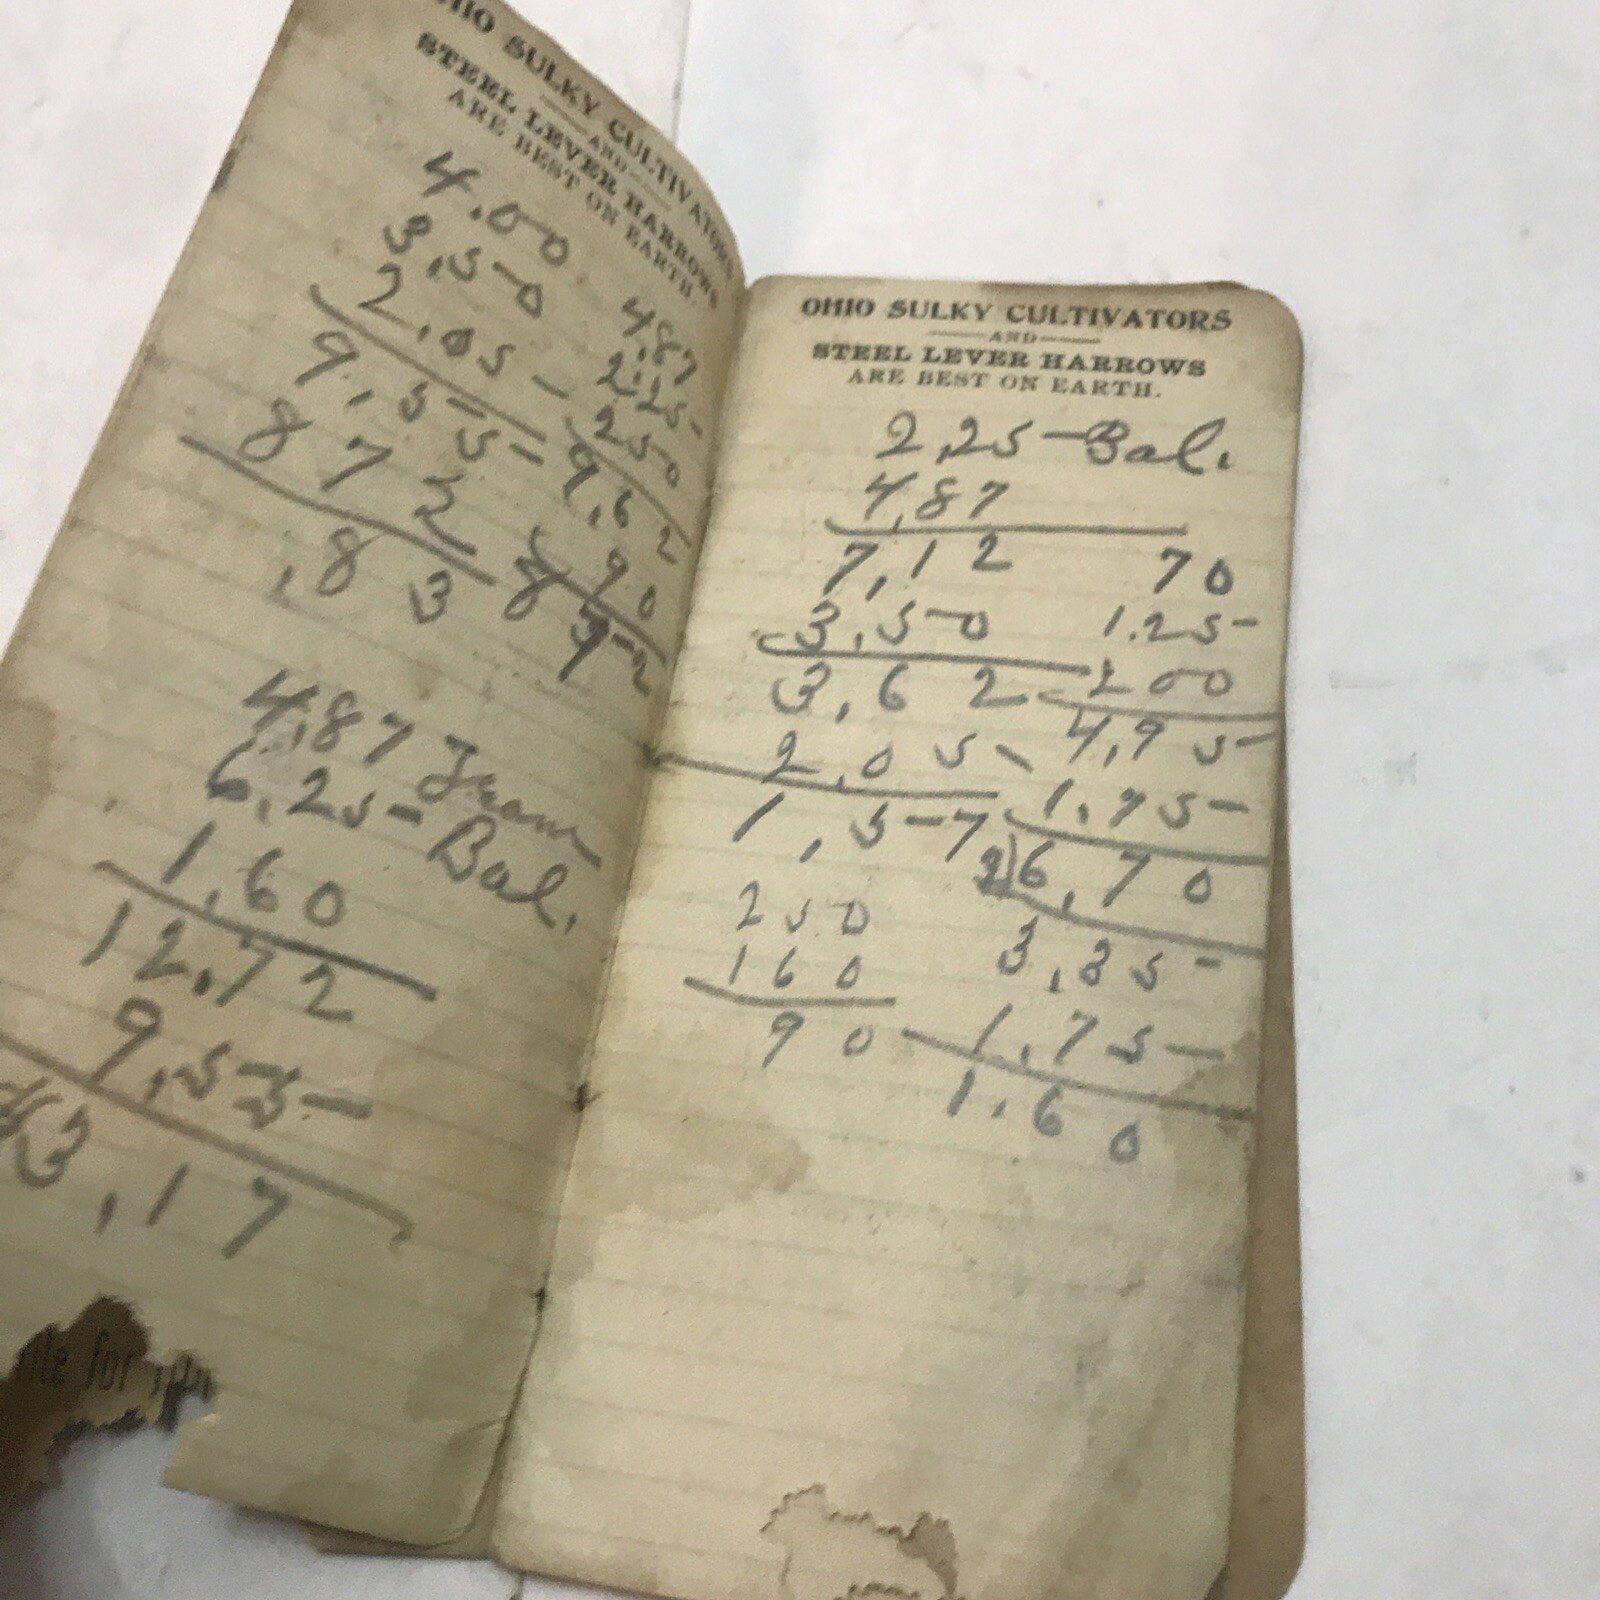 OHIO SULKY CULTIVATORS
AND
STEEL LEVER HARROWS
ARE BEST ON EARTH.
4.00
3,50
2,05
9,55
872
,83
4,87
2,25
250
9,62
90
872
4,87
6,25 Bal.
1,60
12,72
9,55
3,17
for
OHIO SULKY CULTIVATORS
AND
STEEL LEVER HARROWS
ARE BEST ON EARTH.
2,25 Bal.
4,87
7,12
3,50
3,62
2,05
1,57
250
160
90
70
1.25
200
4,95
1,75
2)6,70
3,35
1,75
1,60